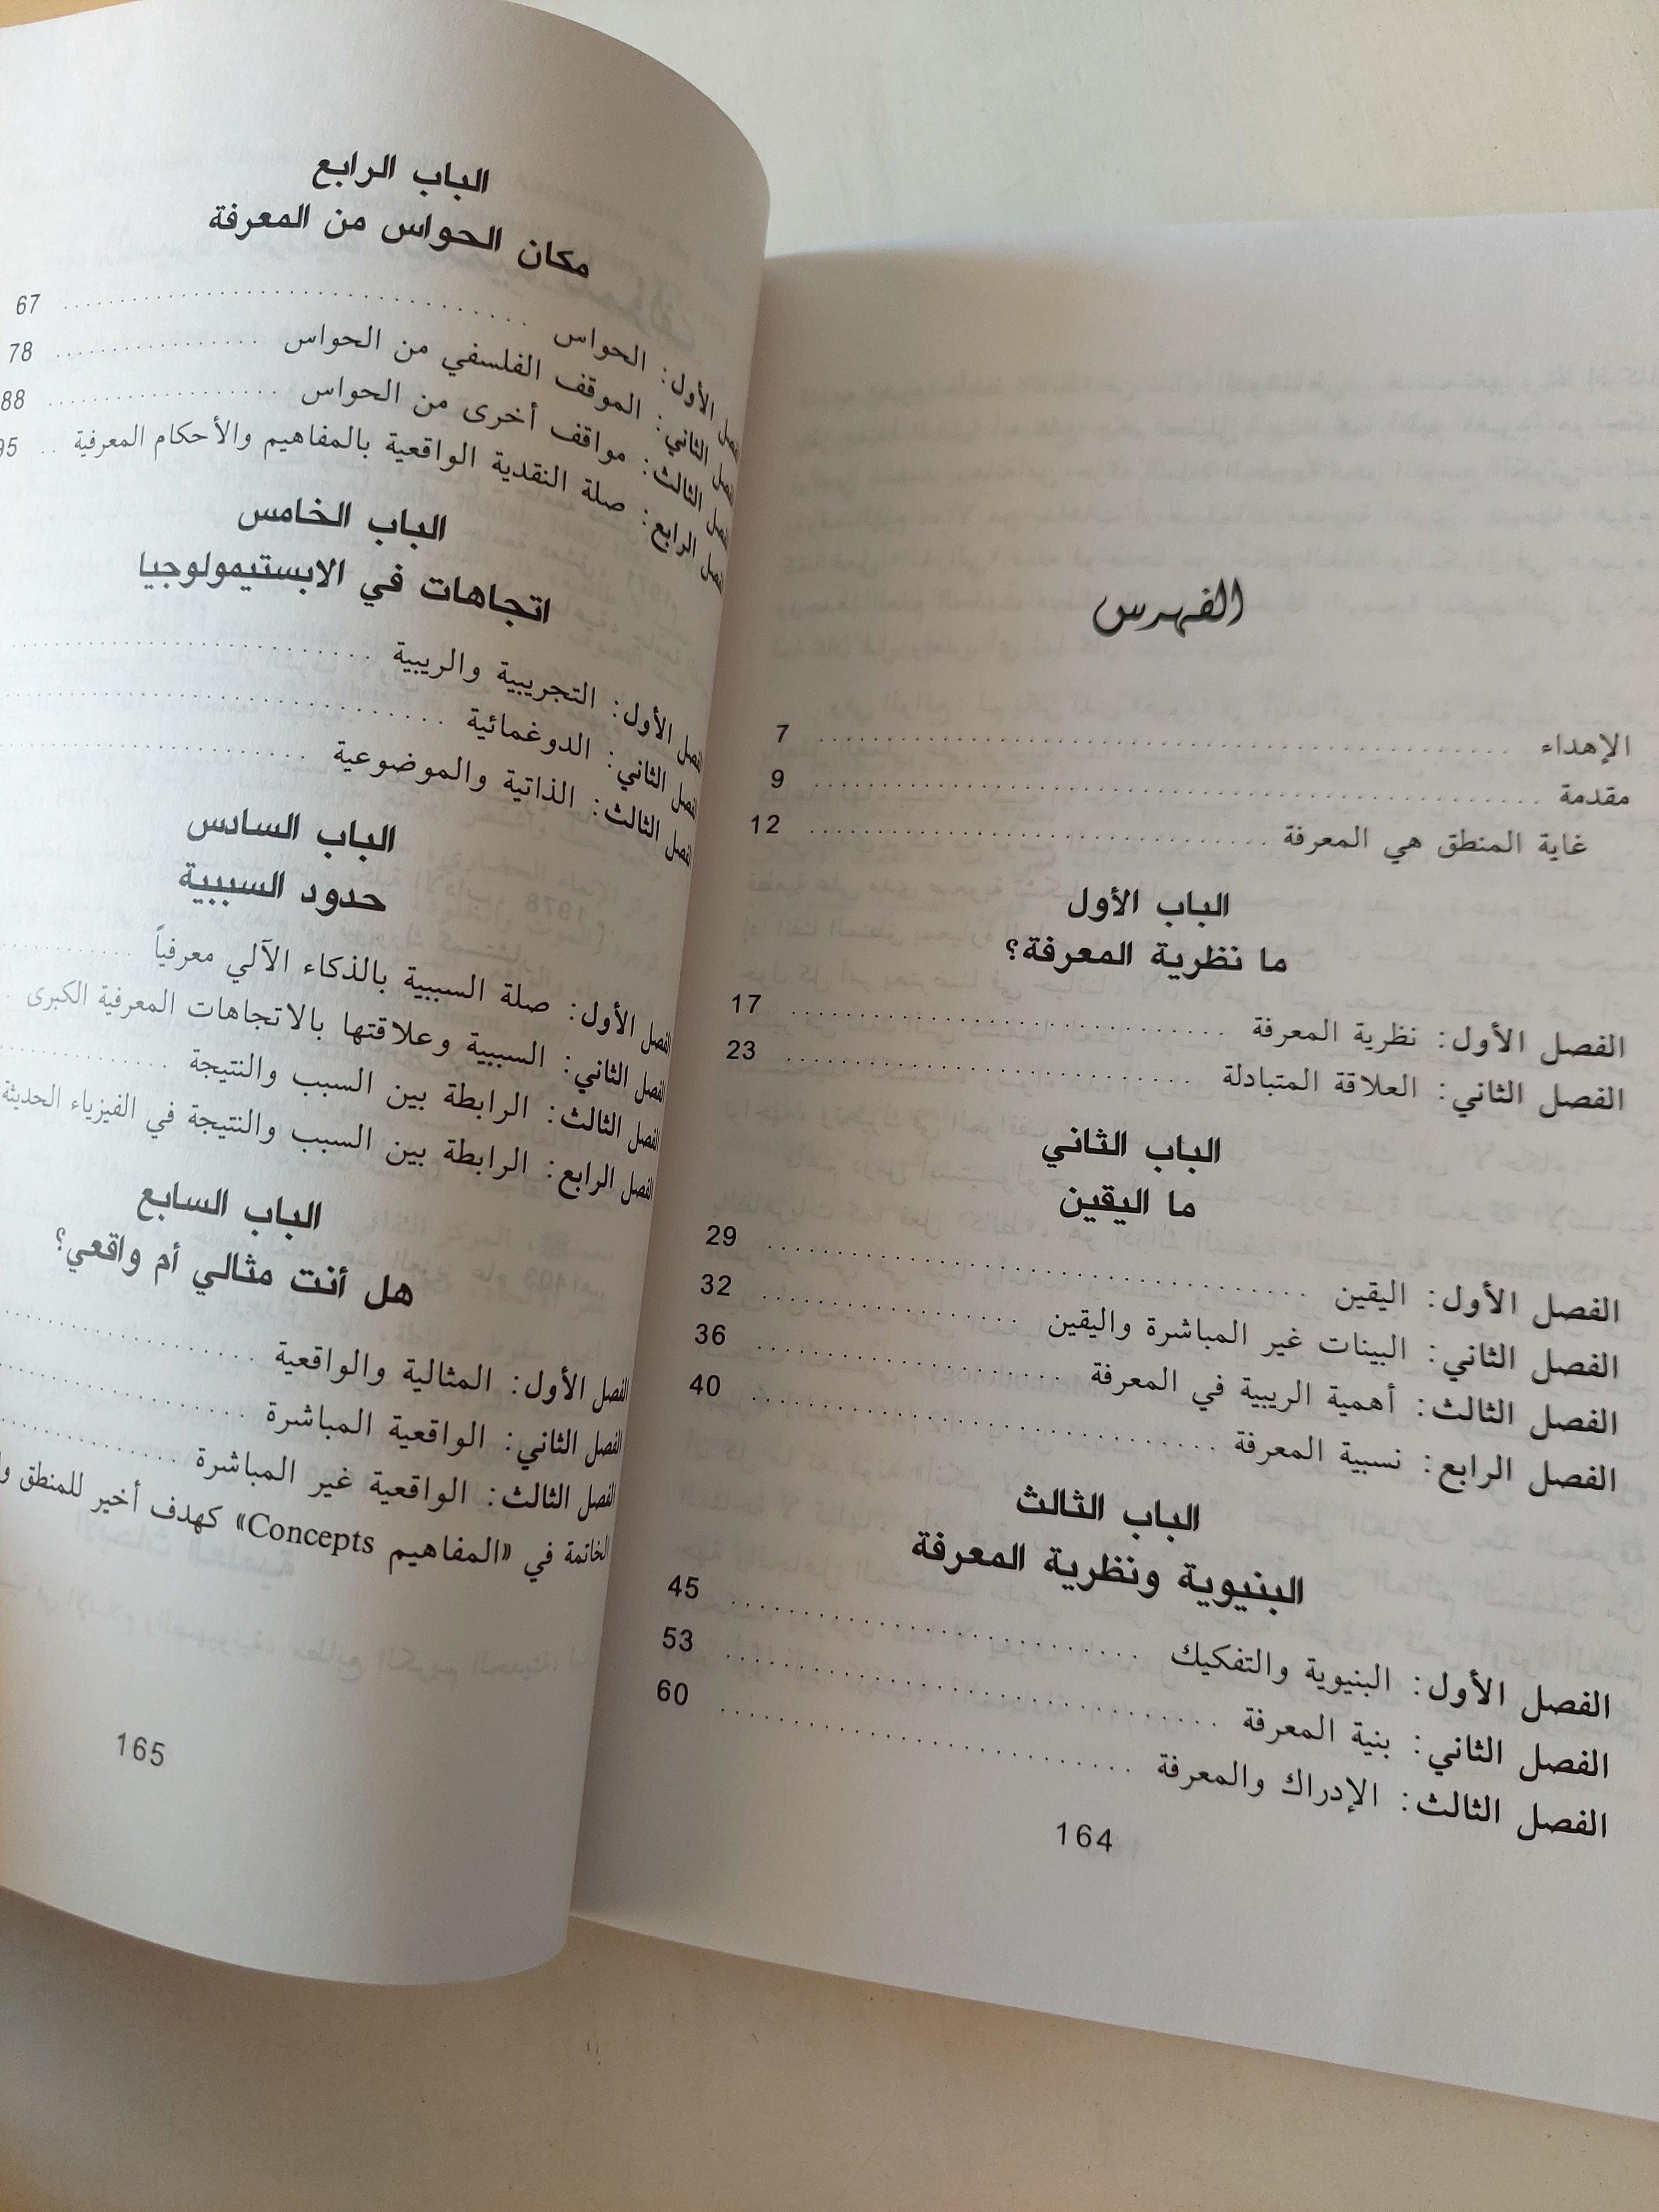 الفهرس
الإهداء 7
مقدمة 9
غاية المنطق هي المعرفة 12
الباب الأول
ما نظرية المعرفة؟
الفصل الأول: نظرية المعرفة 17
الفصل الثاني: العلاقة المتبادلة 23
الباب الثاني
ما اليقين
الفصل الأول: اليقين 29
الفصل الثاني: البينات غير المباشرة واليقين 32
الفصل الثالث: أهمية الريبية في المعرفة 36
الفصل الرابع: نسبية المعرفة 40
الباب الثالث
البنيوية ونظرية المعرفة
الفصل الأول: البنيوية والتفكيك 45
الفصل الثاني: بنية المعرفة 53
الفصل الثالث: الإدراك والمعرفة 60
164
الباب الرابع
مكان الحواس من المعرفة
الفصل الأول: الحواس 67
الفصل الثاني: الموقف الفلسفي من الحواس 78
الفصل الثالث: مواقف أخرى من الحواس 88
الفصل الرابع: صلة النقدية الواقعية بالمفاهيم والأحكام المعرفية 95
الباب الخامس
اتجاهات في الابستيمولوجيا
الفصل الأول: التجريبية والريبية
الفصل الثاني: الدوغمائية
الفصل الثالث: الذاتية والموضوعية
الباب السادس
حدود السببية
الفصل الأول: صلة السببية بالذكاء الآلي معرفياً
الفصل الثاني: السببية وعلاقتها بالاتجاهات المعرفية الكبرى
الفصل الثالث: الرابطة بين السبب والنتيجة
الفصل الرابع: الرابطة بين السبب والنتيجة في الفيزياء الحديثة
الباب السابع
هل أنت مثالي أم واقعي؟
الفصل الأول: المثالية والواقعية
الفصل الثاني: الواقعية المباشرة
الفصل الثالث: الواقعية غير المباشرة
الخاتمة في «المفاهيم Concepts» كهدف أخير للمنطق
165